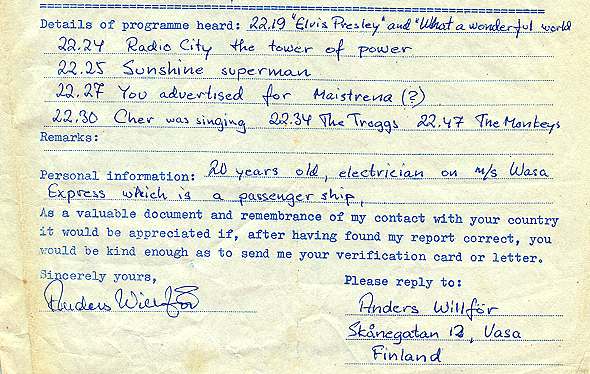 Details of programme heard: 22.19 "Elvis Presley" and "What a wonderful world
22.24 Radio City the tower of power
22.25 Sunshine superman
22.27 You advertised for Maistrena (?)
22.30 Cher was singing 22.34 The Troggs 22.47 The Monkeys
Remarks:
Personal information: 20 years old, electrician on m/s Wasa
Express which is a passenger ship,
As a valuable document and remembrance of my contact with your country
it would be appreciated if, after having found my report correct, you
would be kind enough as to send me your verification card or letter.
Sincerely yours,
Please reply to:
Anders Willför
Anders Willför
Skånegatan 12, Vasa
Finland